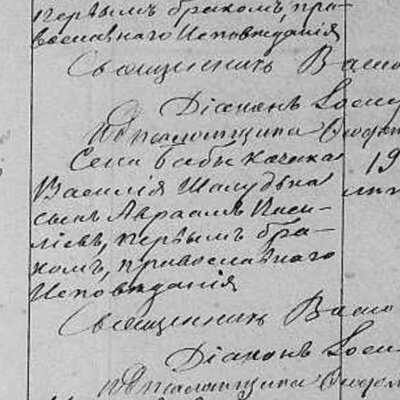 первымъ бракомъ, пра-
вославнаго Исповѣданія
Священникъ Васи
Діаконъ Іоси
И. д. псаломщика Ѳеофа
Села Бабы козака 19
Василія Шалудька лѣт
сынъ Авраамъ Васи-
ліевъ, первымъ бра-
комъ, православнаго
Исповѣданія
Священникъ Васи
Діаконъ Іоси
И. д. псаломщика Ѳеофа